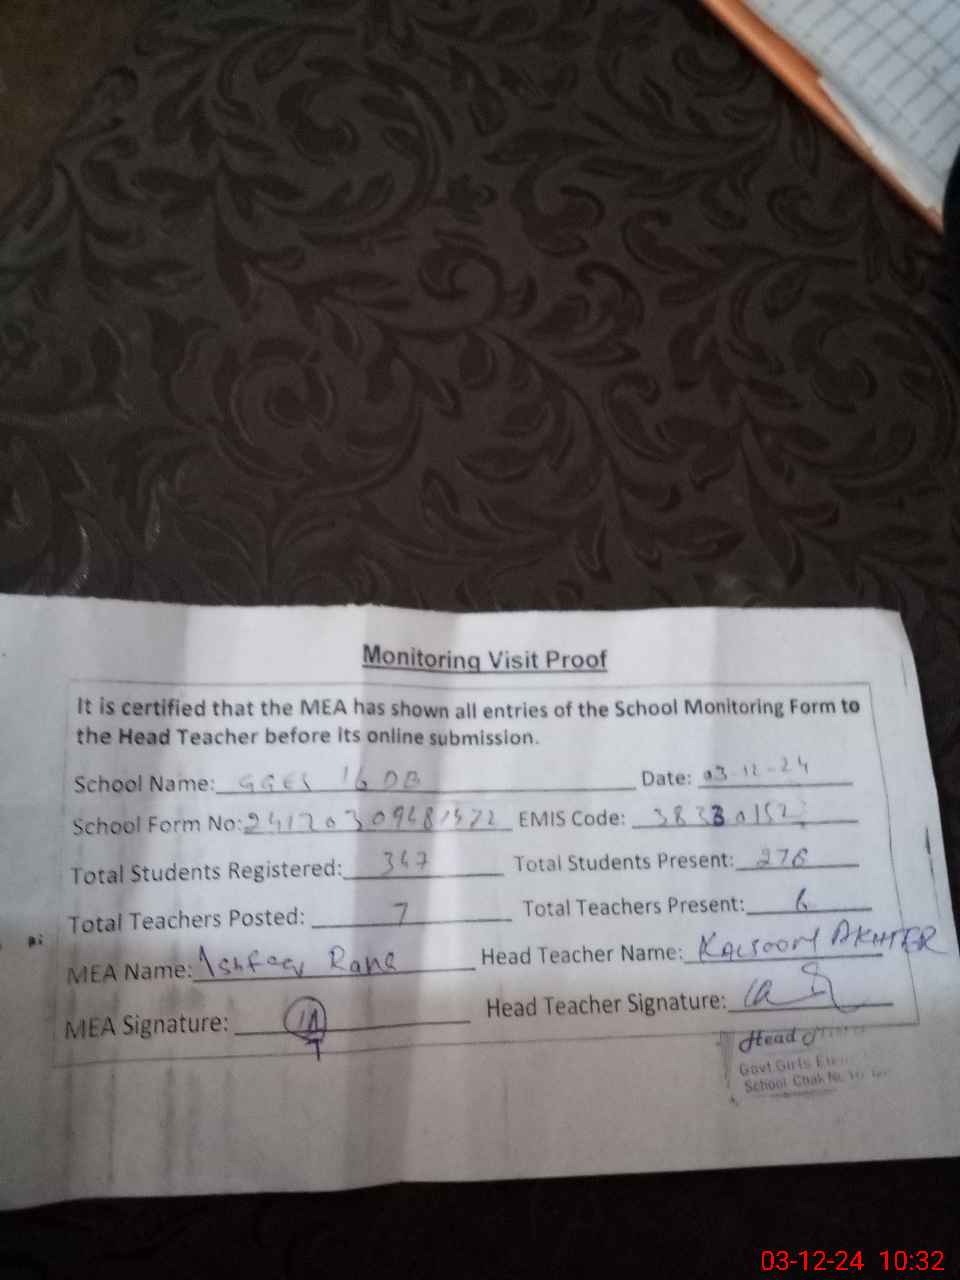 Monitoring Visit Proof
It is certified that the MEA has shown all entries of the School Monitoring Form to
the Head Teacher before its online submission.
School Name: GGES 16 DB Date: 03-12-24
School Form No: EMIS Code:
Total Students Registered: 347 Total Students Present: 276
Total Teachers Posted: 7 Total Teachers Present: 6
MEA Name: Head Teacher Name: KALSOOM AKHTER
MEA Signature: Head Teacher Signature:
Head
Govt.Girls
School Chak No.
03-12-24 10:32